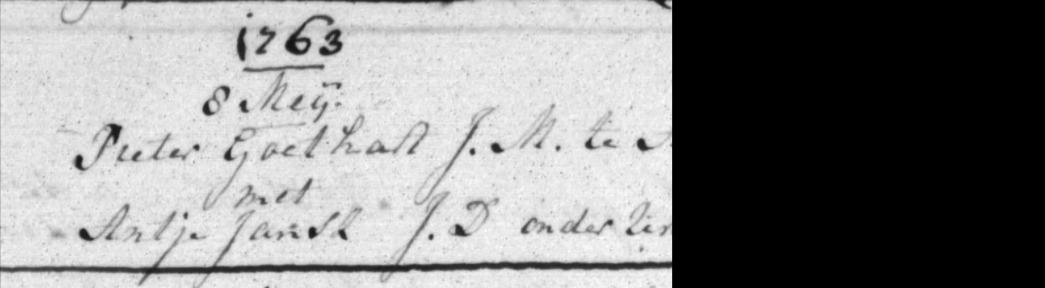 1763
8 Meij.
Pieter Goethart J. M. te
met
Antje Jansk J. D onder